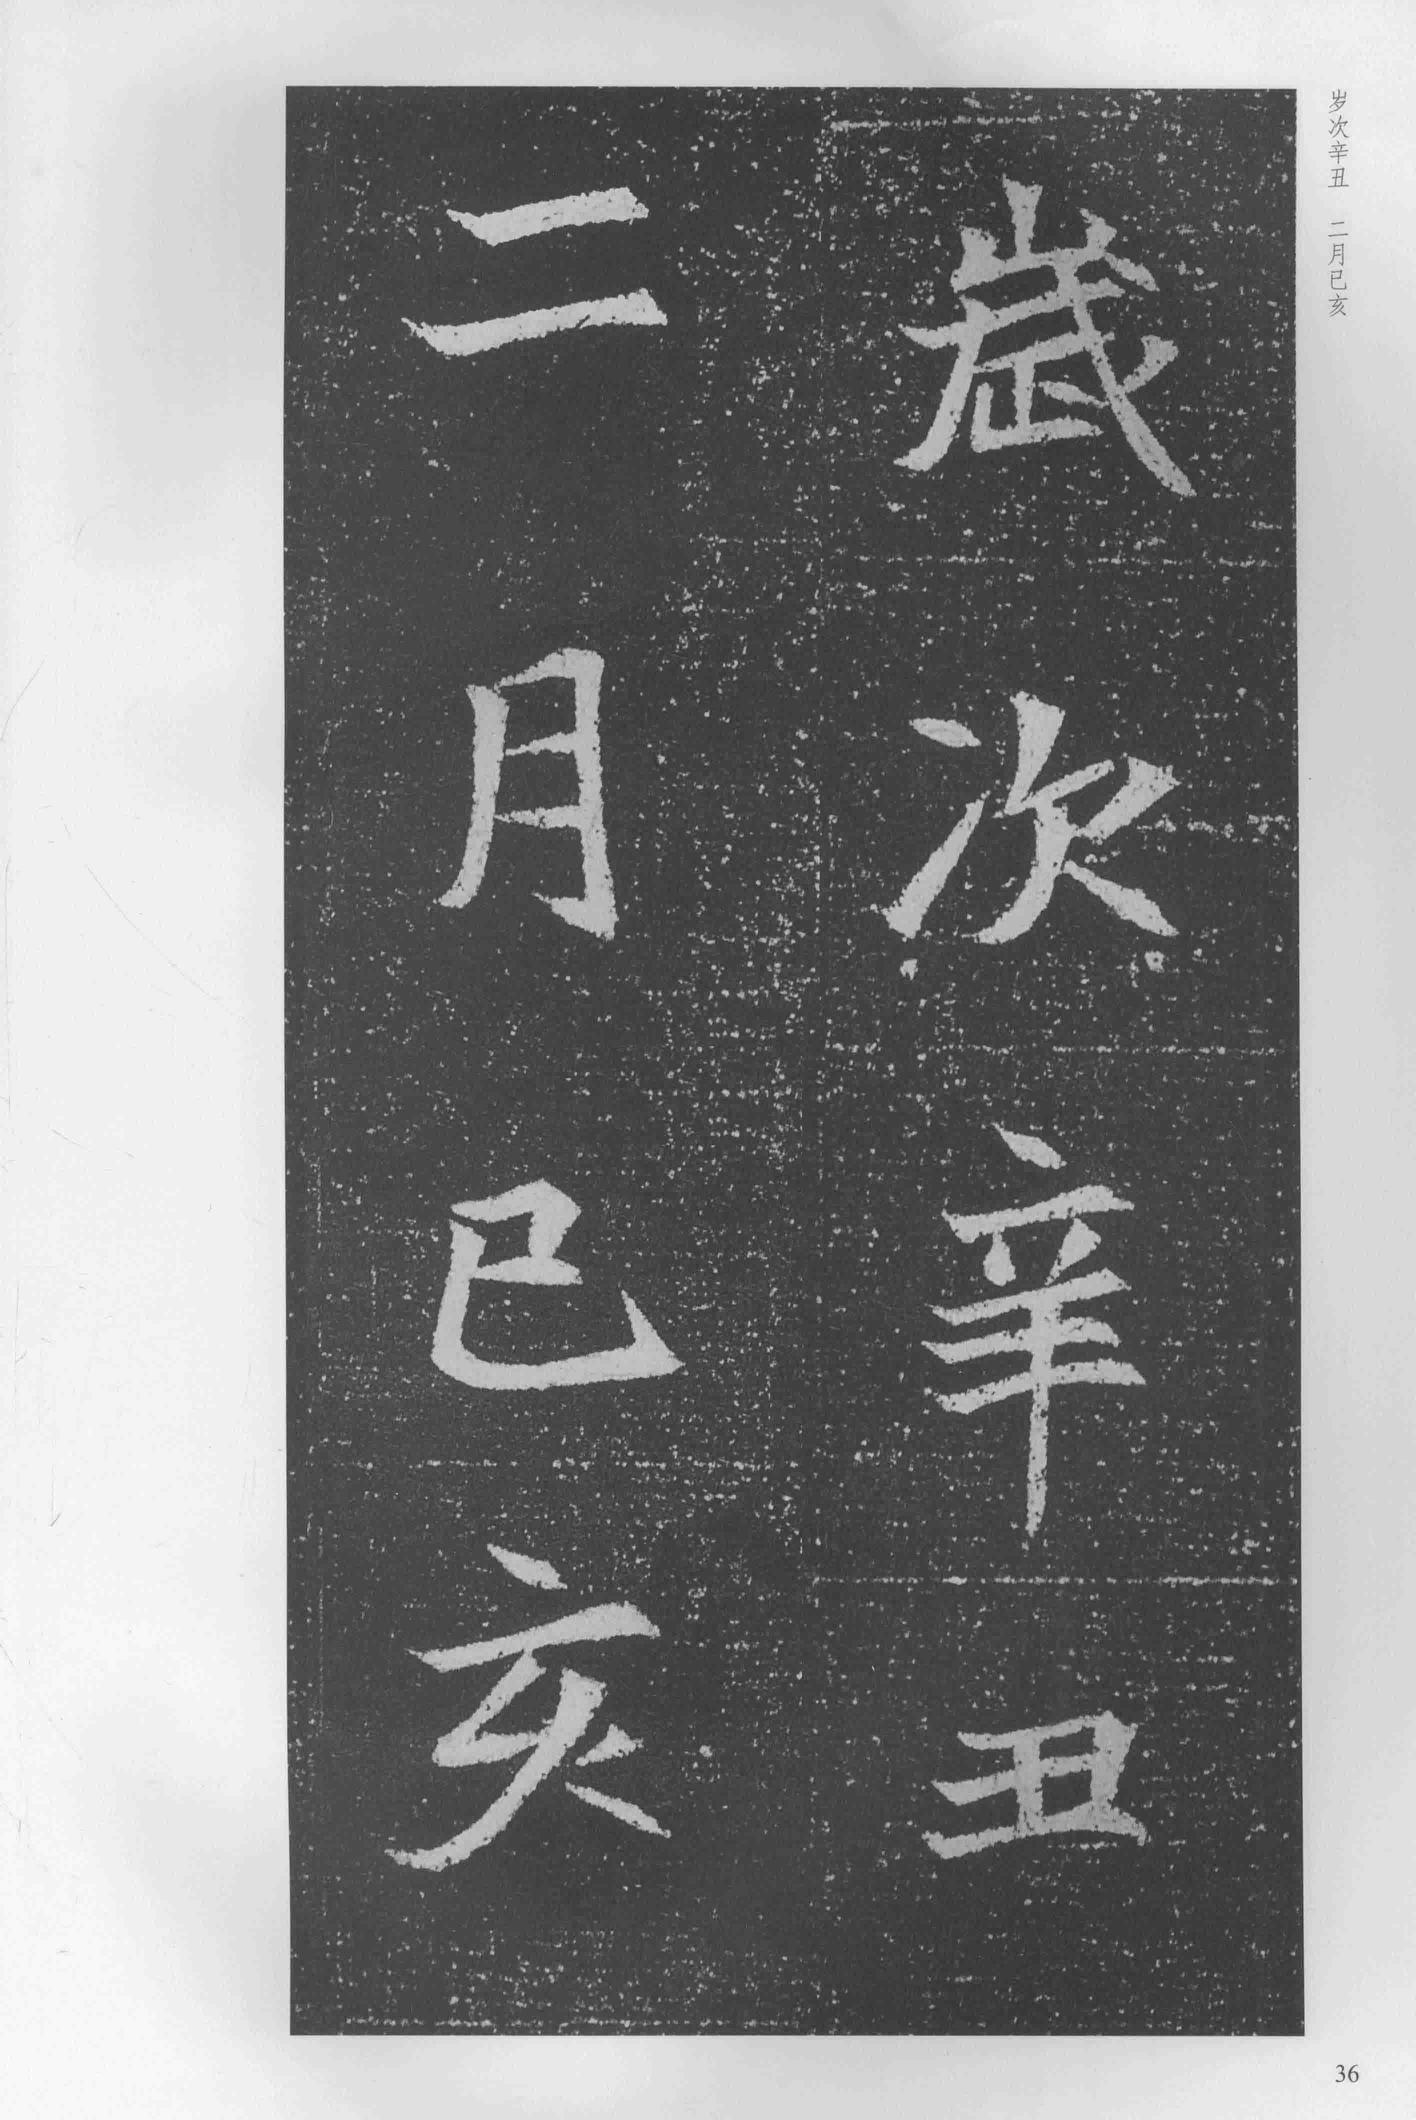 歲次辛丑
二月已亥
岁次辛丑 二月已亥
36